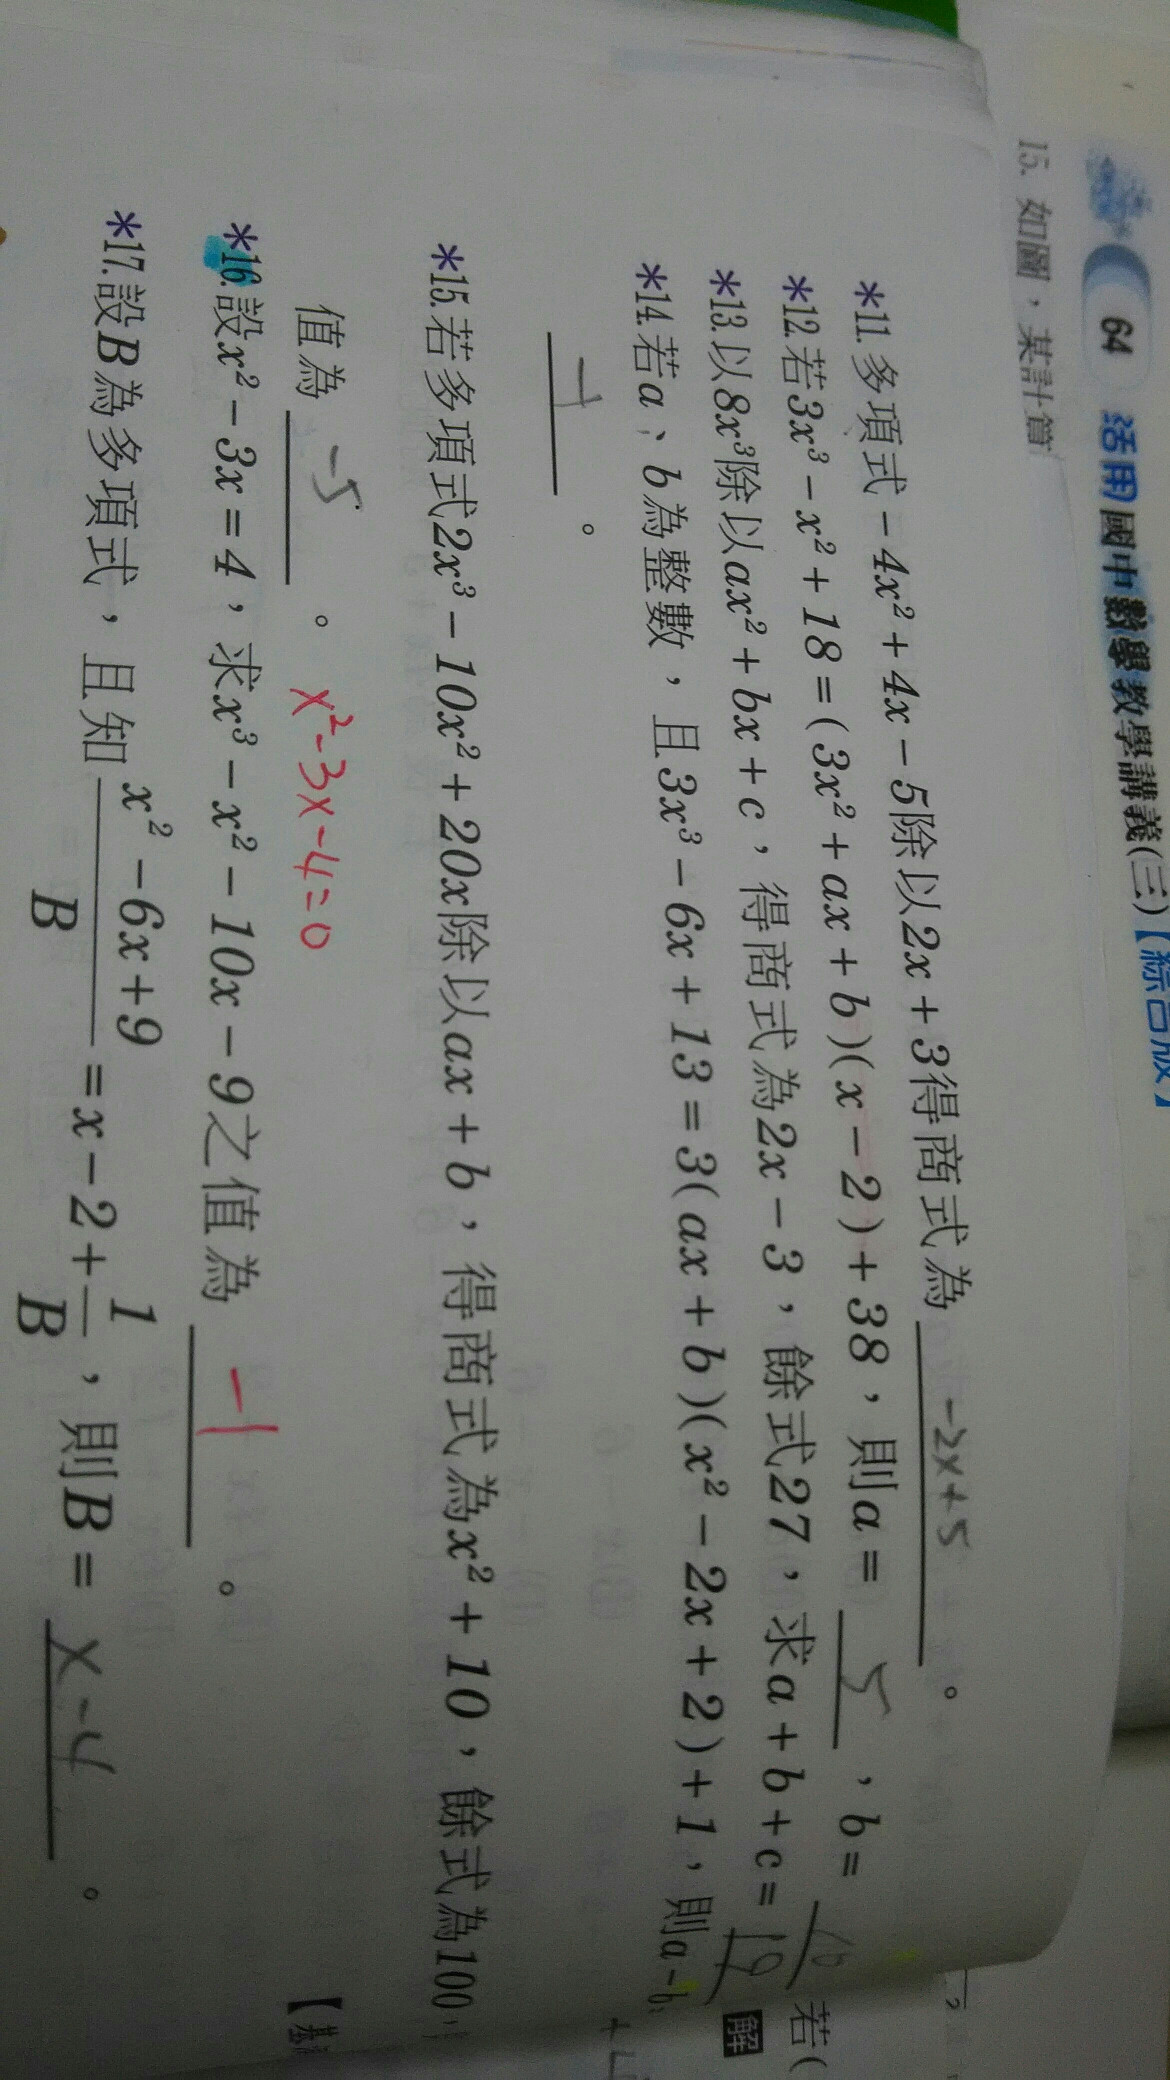 64 活用國中數學教學講義(三)【綜合版】
15. 如圖，某計算
*11. 多項式－4x²＋4x－5除以2x＋3得商式為 -2x+5 。
*12. 若3x³－x²＋18＝(3x²＋ax＋b)(x－2)＋38，則a＝ 5 ，b＝ 10
*13. 以8x³除以ax²＋bx＋c，得商式為2x－3，餘式27，求a＋b＋c＝ 19
*14. 若a、b為整數，且3x³－6x＋13＝3(ax＋b)(x²－2x＋2)＋1，則a－b
-1 。
*15. 若多項式2x³－10x²＋20x除以ax＋b，得商式為x²＋10，餘式為100，
值為 -5 。 x²-3x-4=0
*16. 設x²－3x＝4，求x³－x²－10x－9之值為 -1 。
*17. 設B為多項式，且知 x²－6x＋9/B ＝x－2＋ 1/B ，則B＝ x-4 。
若(
解